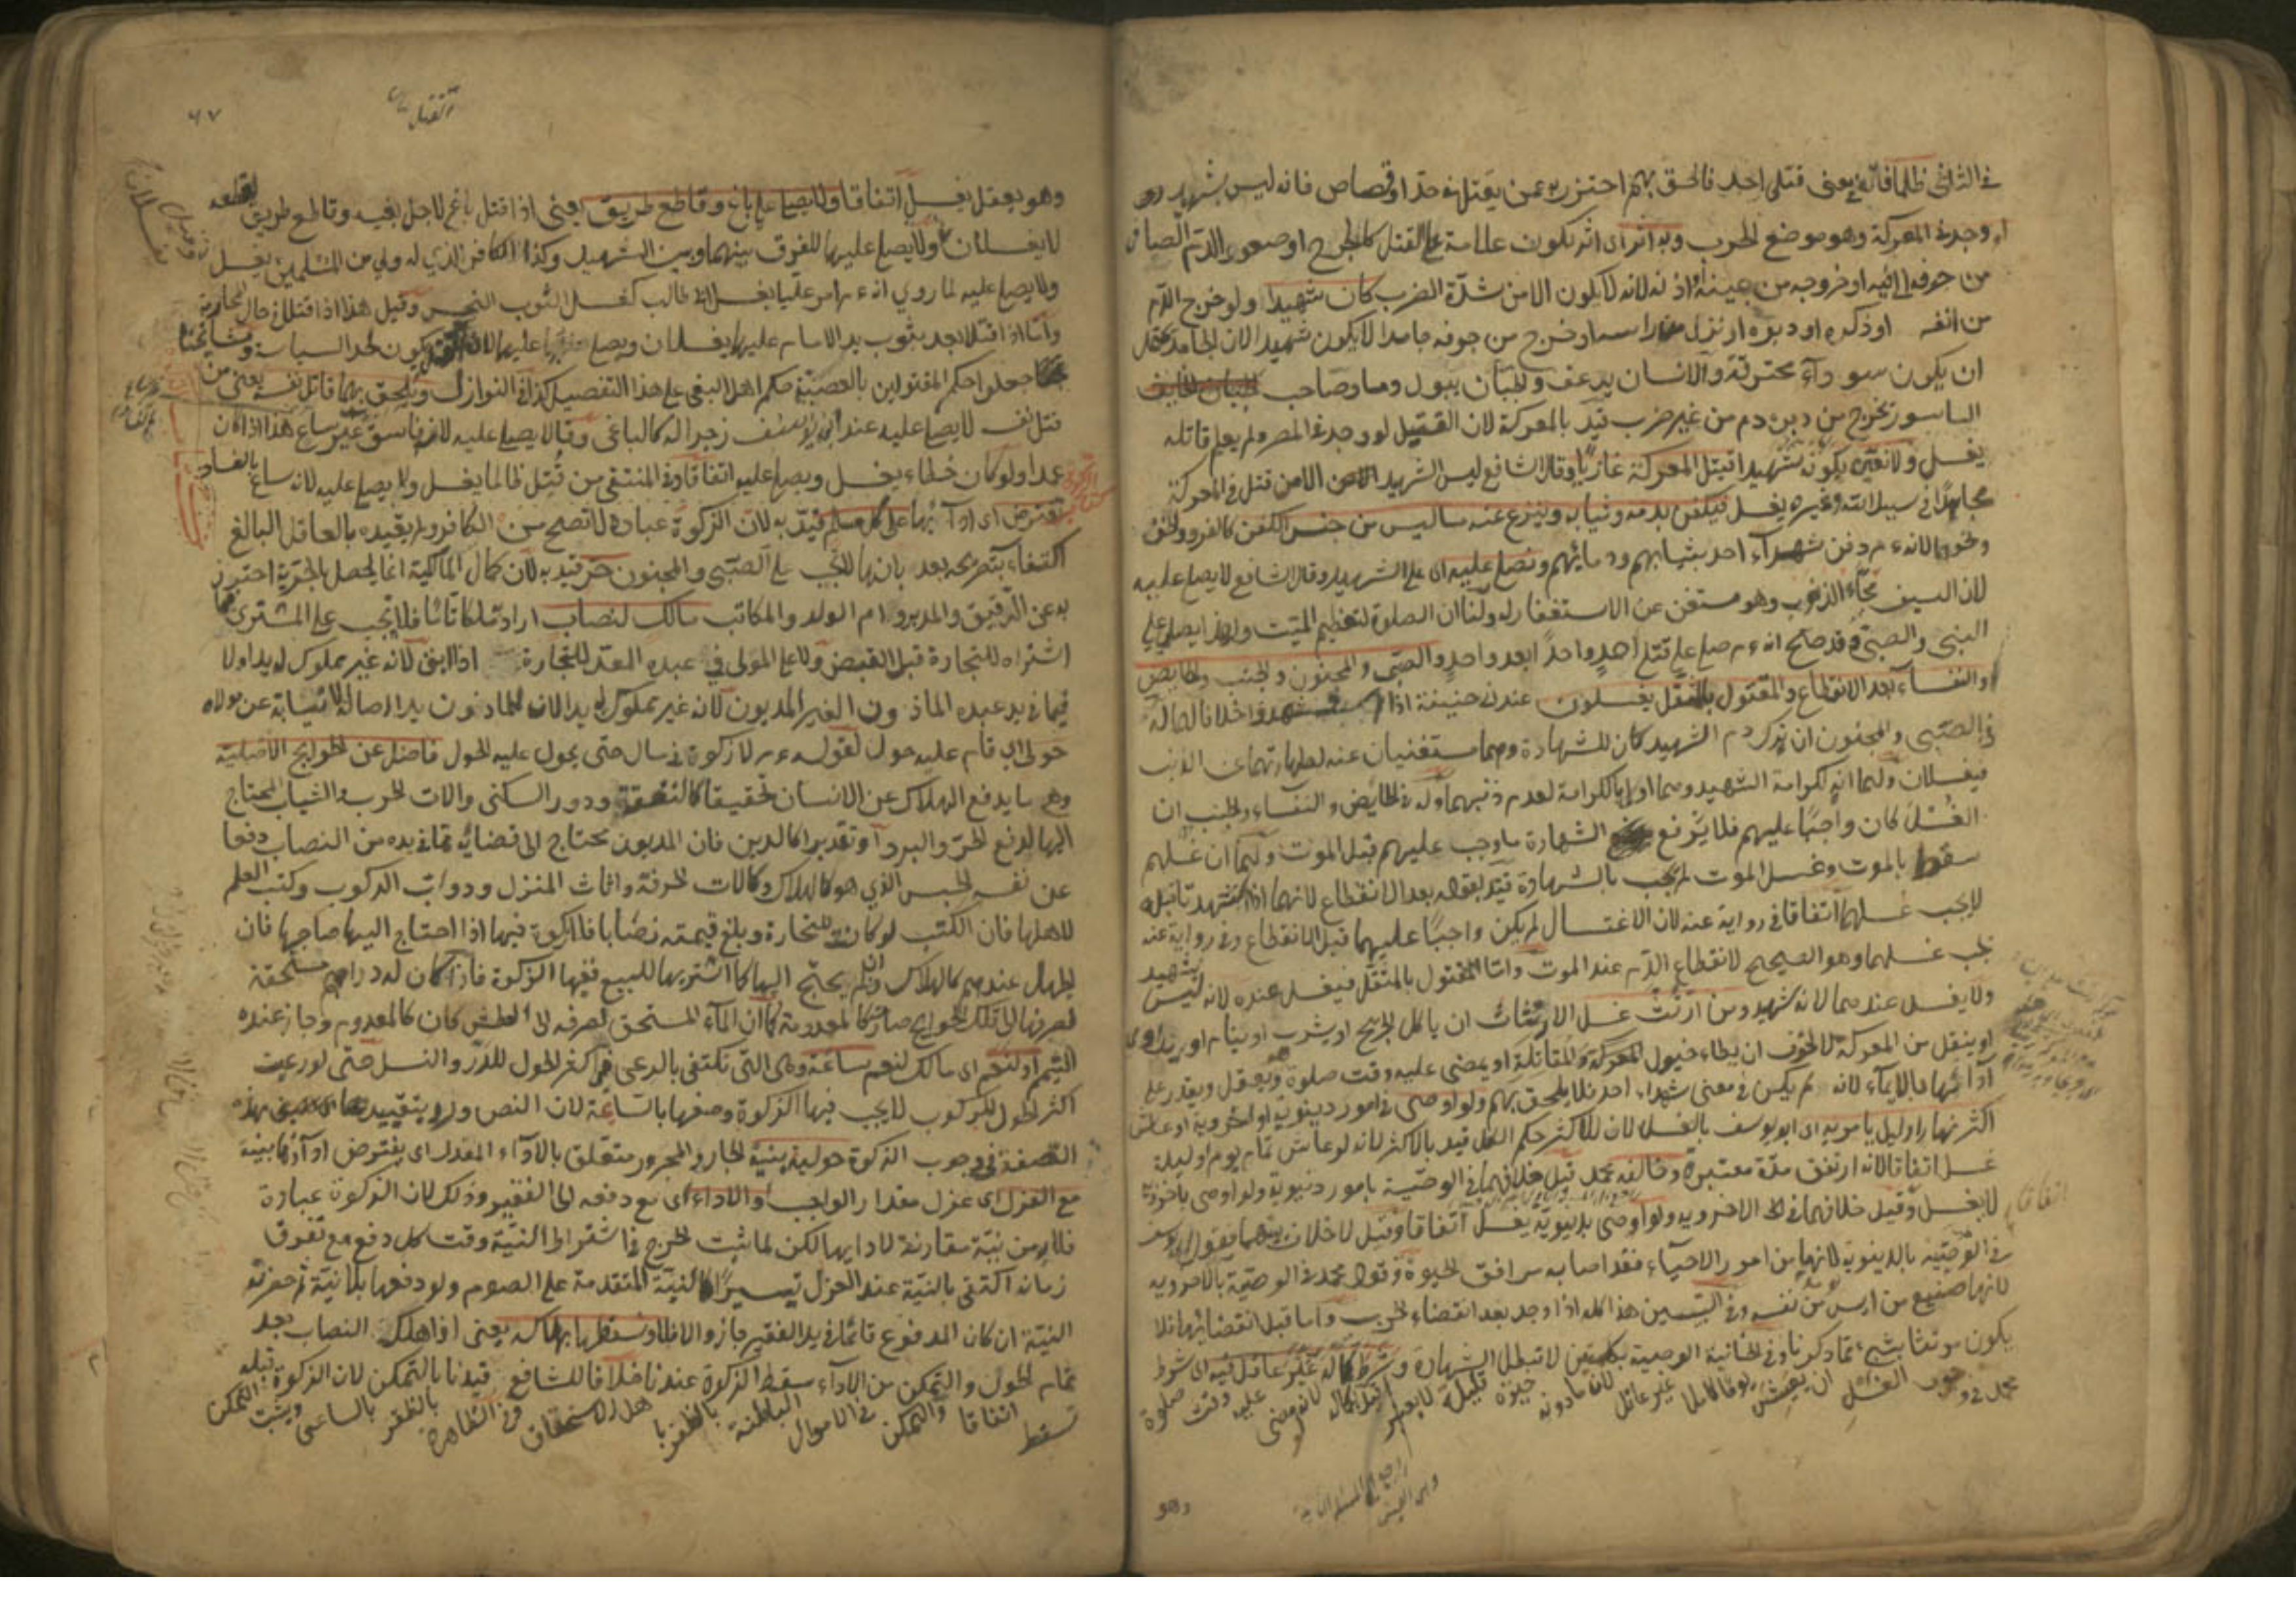 في الثاني ظلما فانه يعني قتلى احد فالحق بهم احترز به عمن يقتل في حد او قصاص فانه ليس بشهيد
او وجد في المعركة وهو موضع الحرب وبه اثر اى اثر يكون علامة على القتل كالجرح او صعود الدم الصافي
من جوفه الى فيه او خروجه من عينه او اذنه لانه لا يكون الا من شدة الضرب كان شهيدا ولو خرج الدم
من انفه او ذكره او دبره او نزل من راسه او خرج من جوفه جامدا لا يكون شهيدا لان الجامد
ان يكون سوداء محترقة والانسان يرعف والجبان يبول دما وصاحب
الباسور يخرج من دبره دم من غير ضرب قيد بالمعركة لان القتيل لو وجد في المصر ولم يعلم قاتله
يغسل ولا يكون شهيدا قتيل المعركة وقال الشافعي ليس الشهيد الا من قتل في المعركة
مجاهدا في سبيل الله وغيره يغسل فيكفن بدمه وثيابه وينزع عنه ما ليس من جنس الكفن كالفرو والخف
ونحوهما لانه عم دفن شهداء احد بثيابهم ودمائهم ونصلى عليه اى على الشهيد وقال الشافعي لا يصلى عليه
لان السيف محاء الذنوب وهو مستغن عن الاستغفار له ولنا ان الصلوة لتعظيم الميت ولهذا يصلى على
النبي والصبي وقد صح انه عم صلى على قتلى احد واحدا بعد واحد والصبى والمجنون والجنب والحايض
والنفساء بعد الانقطاع والمقتول بالمثقل يغسلون عند ابي حنيفة اذا خلافا لهما له
في الصبي والمجنون ان ترك دم الشهيد كان للشهادة وهما مستغنيان عنه لطهارتهما عن الذنب
فيغسلان ولهما انه لكرامة الشهيد وهما اولى بالكرامة لعدم ذنبهما وله في الحايض والنفساء والجنب ان
الغسل كان واجبا عليهم فلا يرفع الشهادة ما وجب عليهم قبل الموت ولهما ان غسلهم
سقط بالموت وغسل الموت لم يجب بالشهادة قيد بقوله بعد الانقطاع لانهما اذا استشهدتا قبله
لا يجب غسلهما اتفاقا في رواية عنه لان الاغتسال لم يكن واجبا عليهما قبل الانقطاع وفي رواية عنه
يجب غسلهما وهو الصحيح لانقطاع الدم عند الموت واما المقتول بالمثقل فيغسل عنده لانه ليس بشهيد
ولا يغسل عندهما لانه شهيد ومن ارتث غسل الارتثاث ان ياكل الجريح او يشرب او ينام او
او ينقل من المعركة لا لخوف ان يطاه خيول المعركة والمقاتلة او يمضي عليه وقت صلوة وهو يعقل ويقدر على
ادائها بالايماء لانه لم يكن في معنى شهداء احد فلا يلحق بهم ولو اوصى في امور دينوية او اخروية او عاش
اكثر نهار او ليل يامر به اى ابو يوسف بالغسل لان للاكثر حكم الكل قيد بالاكثر لانه لو عاش تمام يوم او ليلة
غسل اتفاقا لانه ارتفق مدة معتبرة وخالفه محمد قيل خلافهما في الوصية بامور دنيوية ولو اوصى باخروية
لا يغسل وقيل خلافهما في الاخروية ولو اوصى بدنيوية يغسل اتفاقا وقيل لا خلاف بينهما فقول ابي يوسف
في الوصية بالدينوية لانها من امور الاحياء فقد اصابه مرافق الحيوة وقول محمد في الوصية بالاخروية
لانها صنيع من ايس من نفسه وفي التبيين هذا كله اذا وجد بعد انقضاء الحرب واما قبل انقضائها فلا
يكون مرتثا بشيء مما ذكرنا وفي الخانية الوصية بكلمتين لا تبطل الشهادة وشرط
محمد في وجوب الغسل ان يعيش يوما كاملا غير عاقل لان ما دونه حيوة قليلة لا يعتبر
وهو
القتيل
٦٧
وهو يعقل يغسل اتفاقا ولا يصلى على باغ وقاطع طريق يعني اذا قتل باغ لاجل بغيه وقاطع طريق لقطعه
لا يغسلان ولا يصلى عليهما للفرق بينهما وبين الشهيد وكذا الكافر الذي له ولي من المسلمين يغسل
ولا يصلى عليه لما روي انه عم امر عليا بغسل ابي طالب كغسل الثوب النجس وقيل هذا اذا قتلا في حال المحاربة
واما اذا قتلا بعد ثبوت يد الامام عليهما يغسلان ويصلى عليهما لان يكون لحد السياسة ومشايخنا
جعلوا حكم المقتولين بالعصبية حكم اهل البغي على هذا التفصيل كذا في النوازل ويلحق بهما قاتل نفسه يعني من
قتل نفسه لا يصلى عليه عند ابي يوسف زجرا له كالباغي وقالا يصلى عليه لانه فاسق غير ساع هذا اذا كان
عمدا ولو كان خطاء يغسل ويصلى عليه اتفاقا وفي المنتقى من قتل ظالما يغسل ولا يصلى عليه لانه ساع بالفساد
كتاب الزكوة
تفترض اى اداؤها على كل مسلم قيد به لان الزكوة عبادة لا تصح من الكافر ولم يقيده بالعاقل البالغ
اكتفاء بتصريحه بعد بانها لا تجب على الصبي والمجنون حر قيد به لان كمال المالكية انما يحصل بالحرية احترز
به عن الرقيق والمدبر وام الولد والمكاتب مالك لنصاب اراد ملكا تاما فلا تجب على المشتري فيما
اشتراه للتجارة قبل القبض ولا على المولى في عبده المعد للتجارة اذا ابق لانه غير مملوك له يدا ولا
فيما في يد عبده الماذون الغير المديون لانه غير مملوك له يدا لان للماذون يد اصالة لا نيابة عن مولاه
حولى اى قام عليه حول لقوله عم لا زكوة في مال حتى يحول عليه الحول فاضل عن الحوايج الاصلية
وهي ما يدفع الهلاك عن الانسان تحقيقا كالنفقة ودور السكنى والات الحرب والثياب المحتاج
اليها لدفع الحر والبرد او تقديرا كالدين فان المديون يحتاج الى قضائه مما في يده من النصاب دفعا
عن نفسه الحبس الذي هو كالهلاك وكالات الحرفة واثاث المنزل ودواب الركوب وكتب العلم
لاهلها فان الكتب لو كانت للتجارة وبلغ قيمته نصابا فلا زكوة فيها اذا احتاج اليها صاحبها فان
الجهل عندهم كالهلاك وان لم يحتج اليها كما اشتريها للبيع ففيها الزكوة فاذا كان له دراهم مستحقة
لصرفها الى تلك الحوايج صارت كالمعدومة كما ان الماء المستحق لصرفه الى العطش كان كالمعدوم وجاز عنده
التيمم او لنعم اى مالك لنعم سائمة وهى التي تكتفى بالرعى في اكثر الحول للدر والنسل حتى لو رعيت
اكثر الحول للركوب لا يجب فيها الزكوة وصفها بالسائمة لان النص ورد بتقييدها بهذه
الصفة في وجوب الزكوة حولية بنية الجار والمجرور متعلق بالاداء المقدر اى يفترض اداؤها بنية
مع العزل اى عزل مقدار الواجب او الاداء اى مع دفعه الى الفقير وذلك لان الزكوة عبادة
فلا بد من نية مقارنة لادايها لكن لما ثبت الحرج في اشتراط النية وقت كل دفع مع تفرق
زمانه اكتفى بالنية عند العزل تيسيرا كالنية المتقدمة على الصوم ولو دفعها بلا نية ثم حضرته
النية ان كان المدفوع قائما في يد الفقير جاز والا فلا ونسقطها بهلاكه يعنى اذا هلك النصاب بعد
تمام الحول والتمكن من الاداء سقط الزكوة عندنا خلافا للشافعي قيدنا بالتمكن لان الزكوة قبله
تسقط اتفاقا والتمكن في الاموال الباطنة بالظفر باهل الاستحقاق وفي الظاهرة بالظفر بالساعي ويثبت التمكن